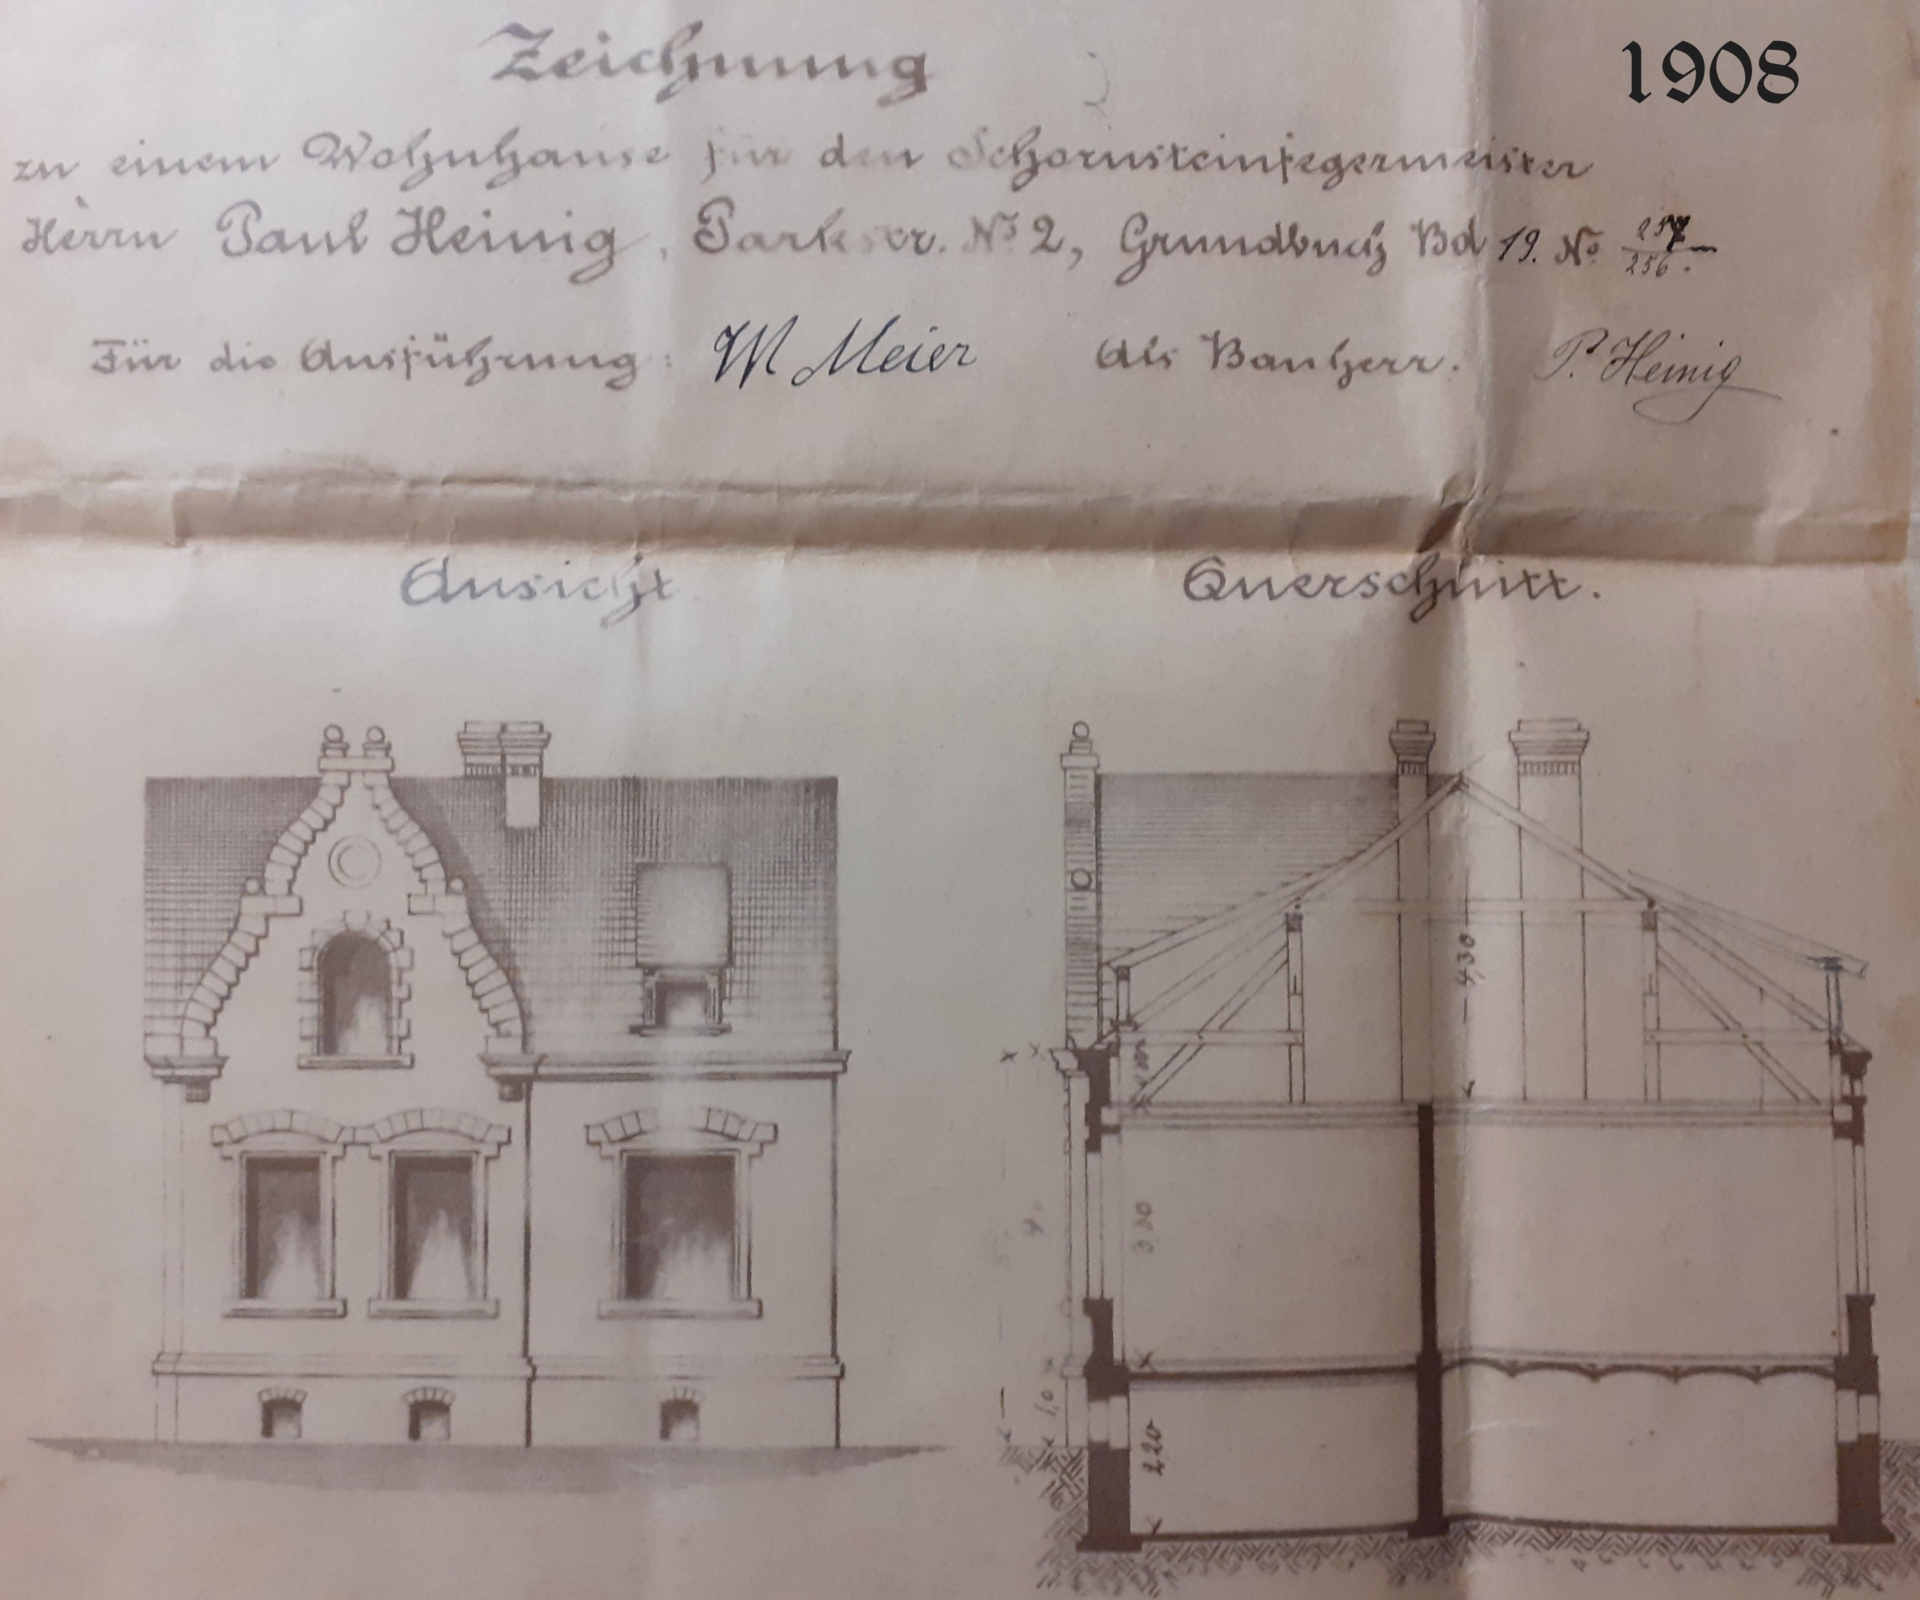 1908
Zeichnung
zu einem Wohnhause für den Schornsteinfegermeister
Herrn Paul Heinig, Parkstr. No 2, Grundbuch Bd 19. No 257/256.
Für die Ausführung: W Meier Als Bauherr. P. Heinig
Ansicht Querschnitt.
4,30
1,0
2,20